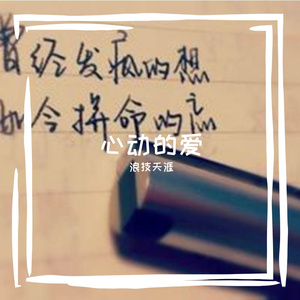 曾经发疯的想
如今拼命的忘
心动的爱
浪技天涯